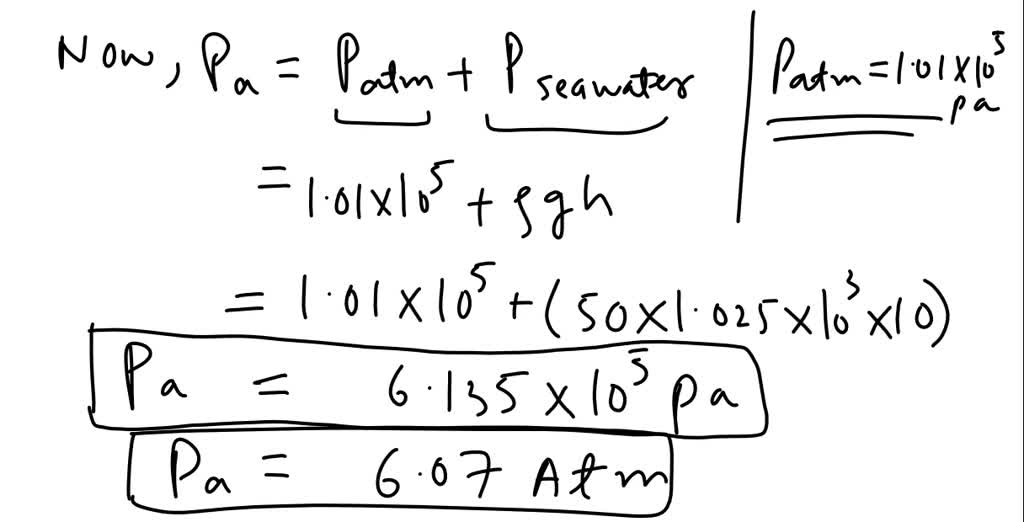 Now, Pa = Patm + P seawater
= 1.01×10^5 + ρgh
= 1.01×10^5 + (50×1.025×10^3×10)
Pa = 6.135×10^5 pa
Pa = 6.07 Atm
Patm = 1.01×10^5
pa